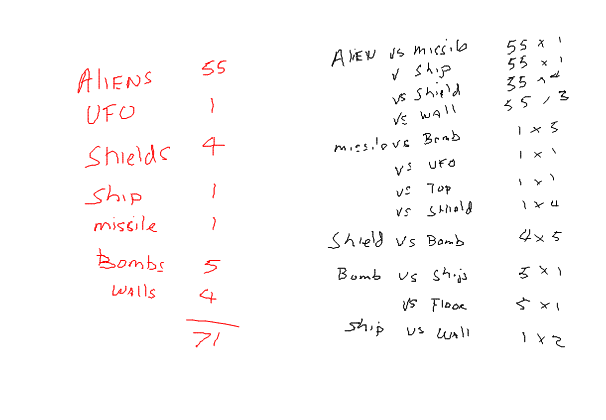 ALIENS 55
UFO 1
Shields 4
Ship 1
missile 1
Bombs 5
WAlls 4
71
AlIEN vs missile 55 x 1
v Ship 55 x 1
vs Shield 55 x 4
vs WAll 55 x 3
missile vs Bomb 1 x 5
vs UFO 1 x 1
vs Top 1 x 1
vs Shield 1 x 4
Shield vs Bomb 4 x 5
Bomb vs Ship 5 x 1
vs Floor 5 x 1
Ship vs WAll 1 x 2